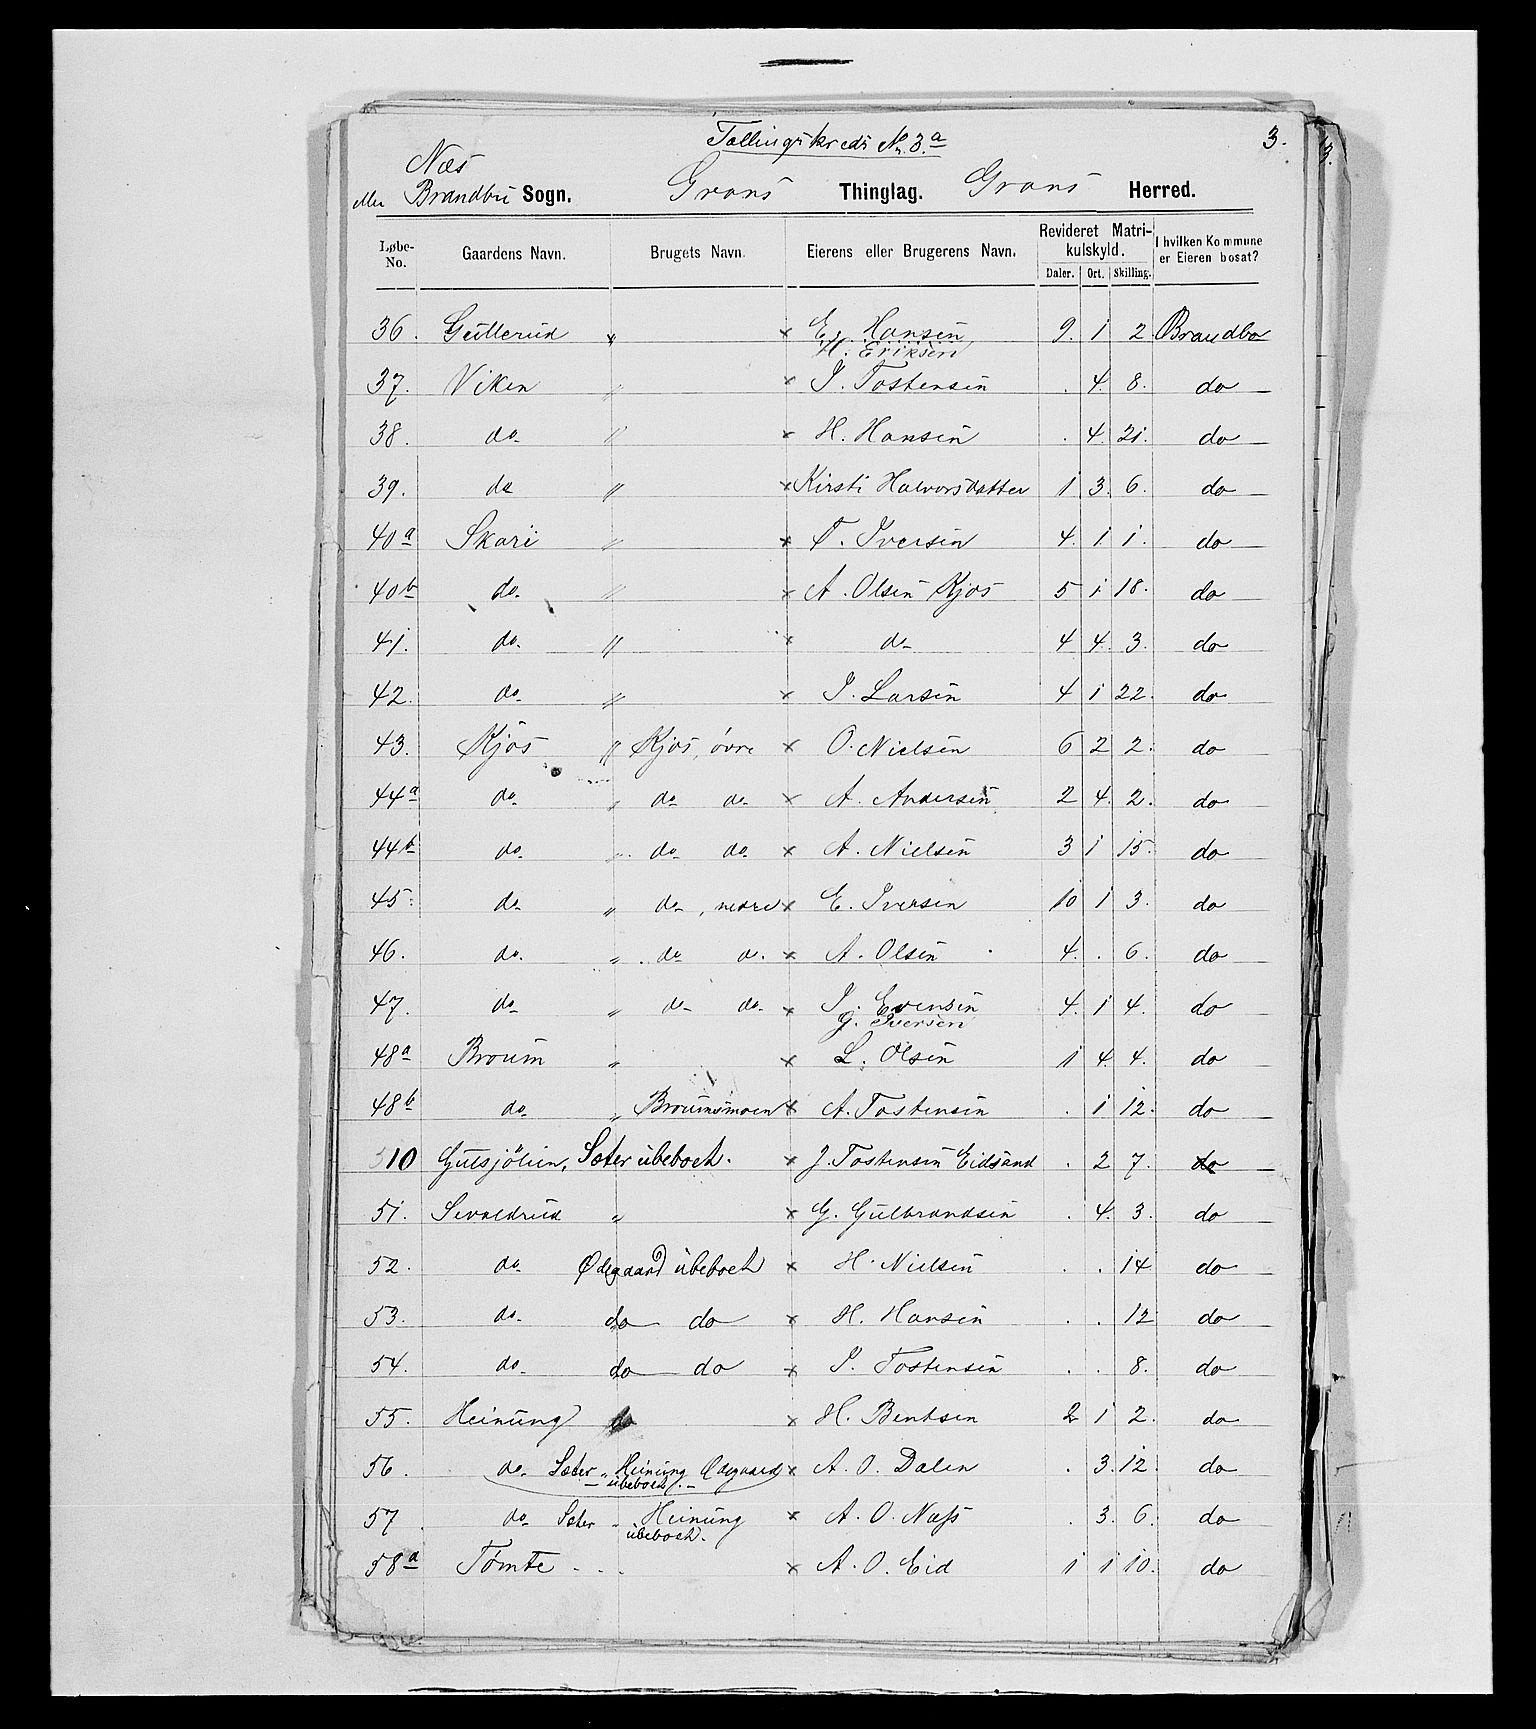 Tællingskreds No. 3a
3.
3.
Næs
eller Brandbu Sogn. Grans Thinglag. Grans Herred.
Løbe-No. Gaardens Navn. Brugets Navn. Eierens eller Brugerens Navn. Revideret Matrikulskyld. I hvilken Kommune er Eieren bosat?
Daler. Ort. Skilling.
36. Gullerud " × E. Hansen 9. 1 2 Brandbo
H. Eriksen
37. Viken " × I. Tostensen . 4. 8. do
38. do " × H. Hansen . 4. 21. do
39. do " × Kirsti Halvorsdatter 1 3. 6. do
40a Skari " × T. Iversen 4. 1. 1. do
40b do " × A. Olsen Kjos 5 1 18. do
41. do " × do 4 4. 3. do
42. do " × I. Larsen 4 1 22. do
43. Kjos " Kjos, övre × O. Nielsen 6 2 2. do
44a do " do do × A. Andersen 2 4. 2. do
44b do " do do × A. Nielsen 3 1 15. do
45. do " do, nedre × E. Iversen 10 1 3. do
46. do " do do × A. Olsen 4. . 6. do
47. do " do do × I. Evensen 4. 1 4. do
G. Iversen
48a Broum " × L. Olsen 1 4. 4. do
48b do " Broumsmoen × A. Tostensen . 1 12. do
510 Gulsjölien, Sæter ubeboet. × J. Tostensen Eidsand . 2 7. do
51. Sevaldrud " × G. Gulbrandsen . 4. 3. do
52. do Ødegaard ubeboet × H. Nielsen . . 14 do
53. do do do × H. Hansen . . 12 do
54. do do do × I. Tostensen . . 8. do
55. Heinung do × H. Bentsen 2 1 2. do
56. do Sæter " Heinung Ødegaard × A. O. Dalen . 3. 12. do
ubeboet.
57. do Sæter " Heinung × A. O. Næss . 3. 6. do
ubeboet.
58a Tømte × A. O. Eid 1 1 10. do